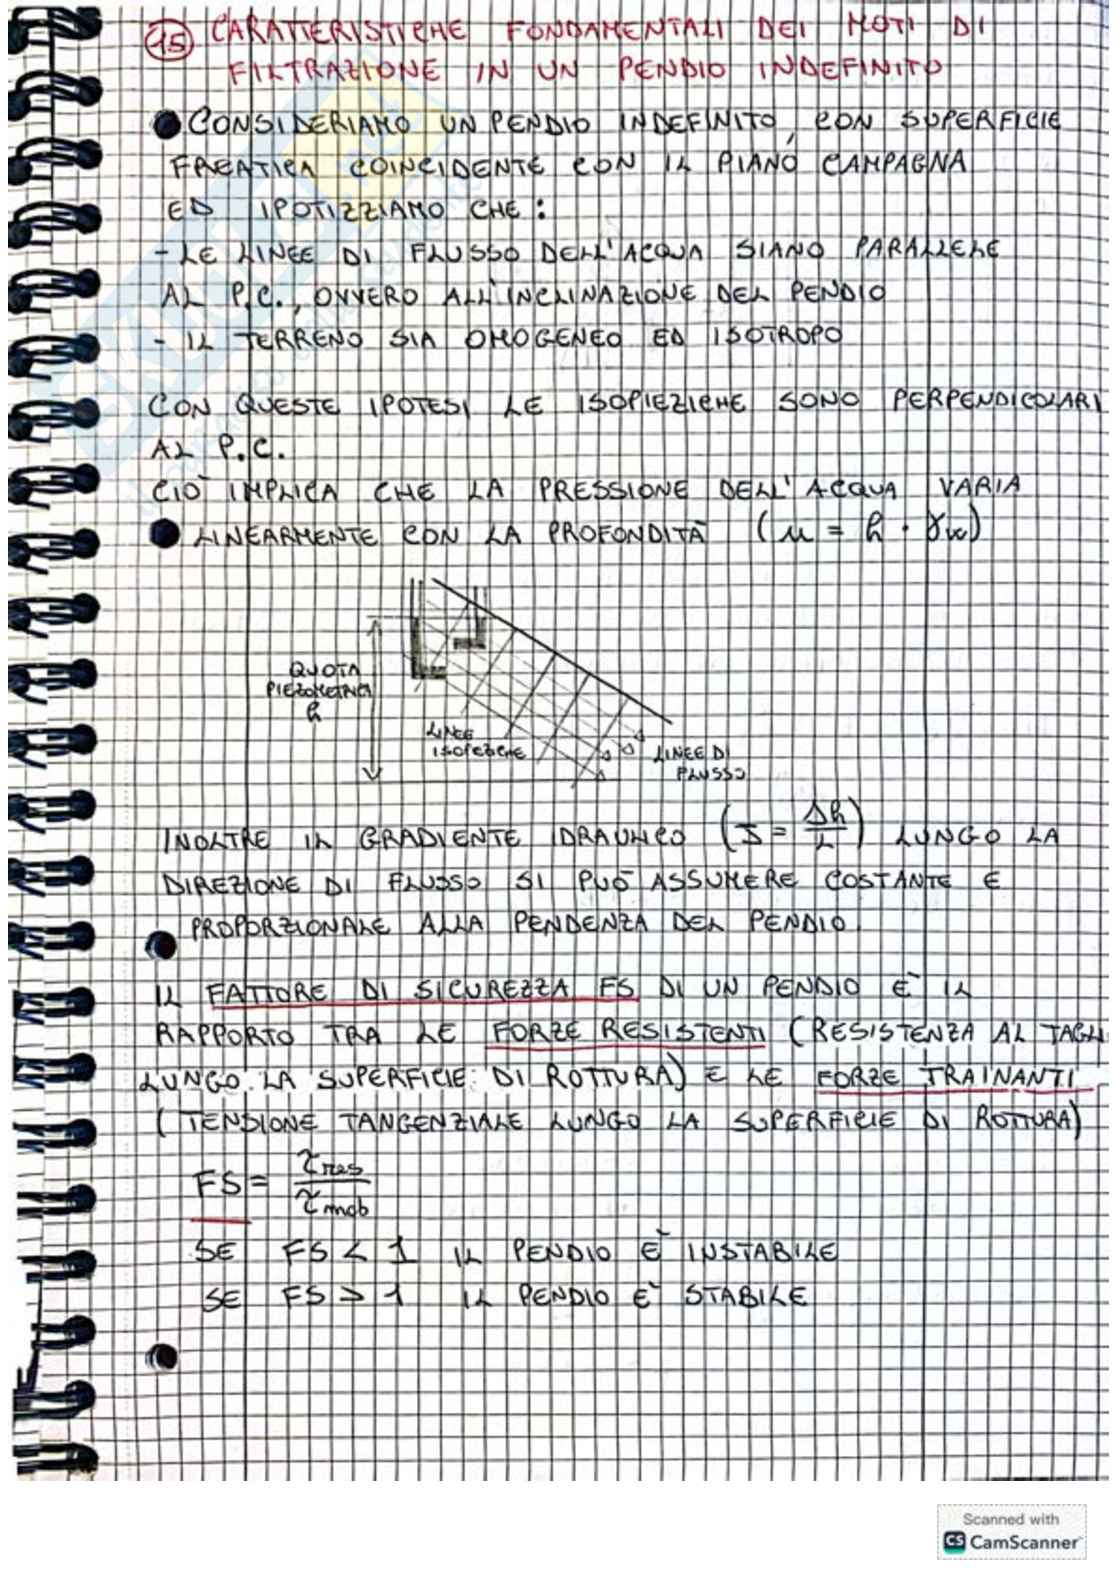 15 CARATTERISTICHE FONDAMENTALI DEI MOTI DI
FILTRAZIONE IN UN PENDIO INDEFINITO
CONSIDERIAMO UN PENDIO INDEFINITO, CON SUPERFICIE
FREATICA COINCIDENTE CON IL PIANO CAMPAGNA
ED IPOTIZZIAMO CHE:
- LE LINEE DI FLUSSO DELL'ACQUA SIANO PARALLELE
AL P.C., OVVERO ALL'INCLINAZIONE DEL PENDIO
- IL TERRENO SIA OMOGENEO ED ISOTROPO
CON QUESTE IPOTESI LE ISOPIEZICHE SONO PERPENDICOLARI
AL P.C.
CIÒ IMPLICA CHE LA PRESSIONE DELL'ACQUA VARIA
LINEARMENTE CON LA PROFONDITÀ (u = h · γw)
QUOTA
PIEZOMETRICA
h
LINEE
ISOPIEZICHE
LINEE DI
FLUSSO
INOLTRE IL GRADIENTE IDRAULICO (J = Δh/L) LUNGO LA
DIREZIONE DI FLUSSO SI PUÒ ASSUMERE COSTANTE E
PROPORZIONALE ALLA PENDENZA DEL PENDIO.
IL FATTORE DI SICUREZZA FS DI UN PENDIO È IL
RAPPORTO TRA LE FORZE RESISTENTI (RESISTENZA AL TAGLI
LUNGO LA SUPERFICIE DI ROTTURA) E LE FORZE TRAINANTI
(TENSIONE TANGENZIALE LUNGO LA SUPERFICIE DI ROTTURA)
FS = τres/τmob
SE FS < 1 IL PENDIO È INSTABILE
SE FS > 1 IL PENDIO È STABILE
Scanned with
CS CamScanner